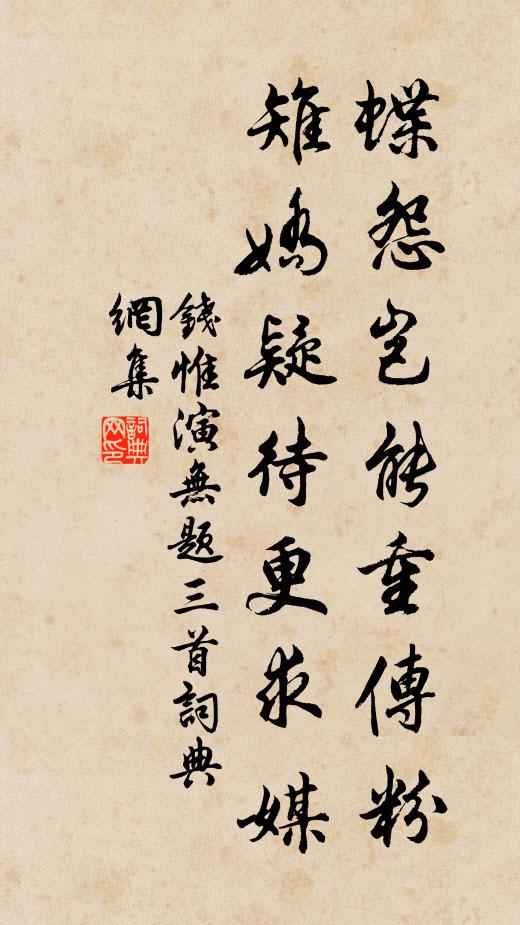 蝶怨岂能重傳粉
雉嬌疑待更求媒
錢惟演無題三首詞典
網集
詞典
网印